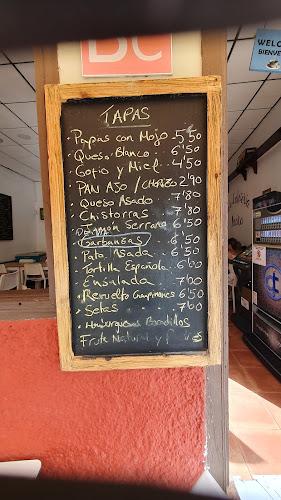 BC
WELCO
BIENVE
TAPAS
Papas con Mojo 5'50
Queso Blanco 6'50
Gofio y Miel 4'50
PAN AJO / CHORIZO 2'90
Queso Asado 7'80
Chistorras 7'80
Jamón Serrano 6'50
Garbanzas 6'50
Pata Asada 6'50
Tortilla Española 6'60
Ensalada 7'00
Revuelto Champiñones 6'50
Setas 7'60
Hamburguesas Bocadillos
Fruta Natural y